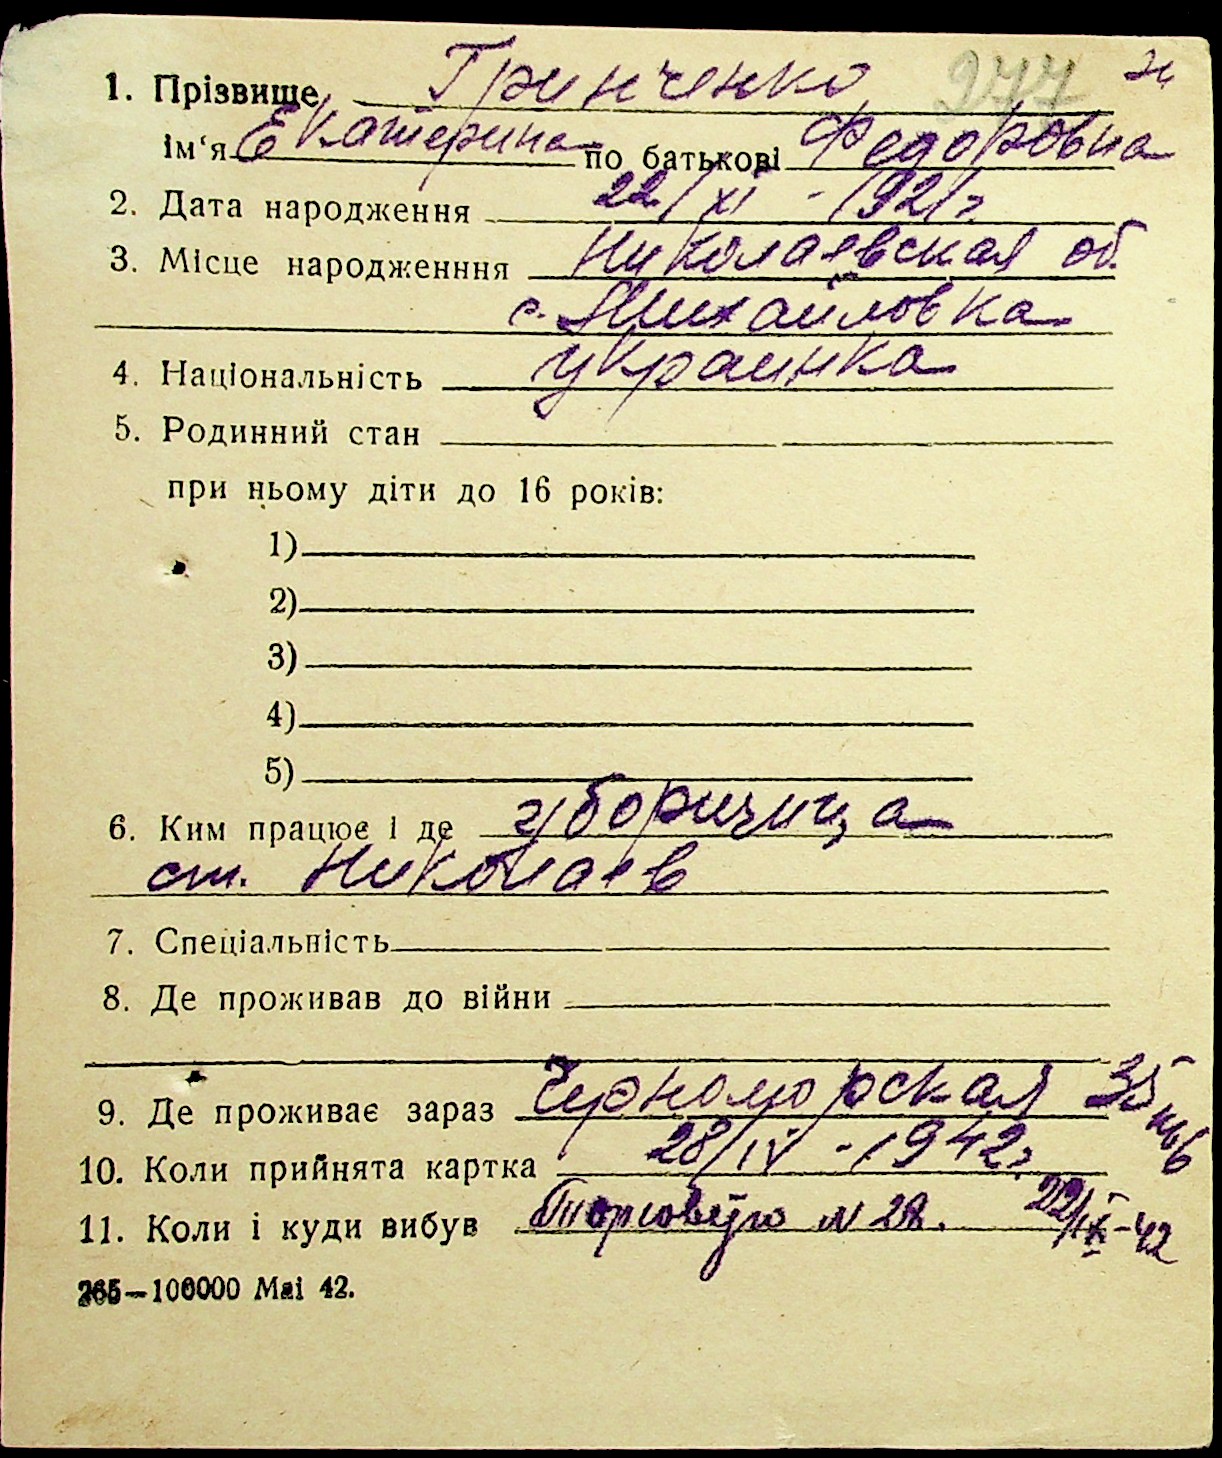 277 н
1. Прізвище Гринченко
ім‘я Екатерина по батькові Федоровна
2. Дата народження 22/XI - 1921 г.
3. Місце народженння Николаевская об.
с. Михайловка
4. Національність украинка
5. Родинний стан
при ньому діти до 16 років:
1)
2)
3)
4)
5)
6. Ким працює і де уборщица
ст. Николаев
7. Спеціальність
8. Де проживав до війни
9. Де проживає зараз Черноморская 35
10. Коли прийнята картка 28/IV - 1942 г.
11. Коли і куди вибув Торговую N 28. 22/IX-42
265—100000 Маі 42.